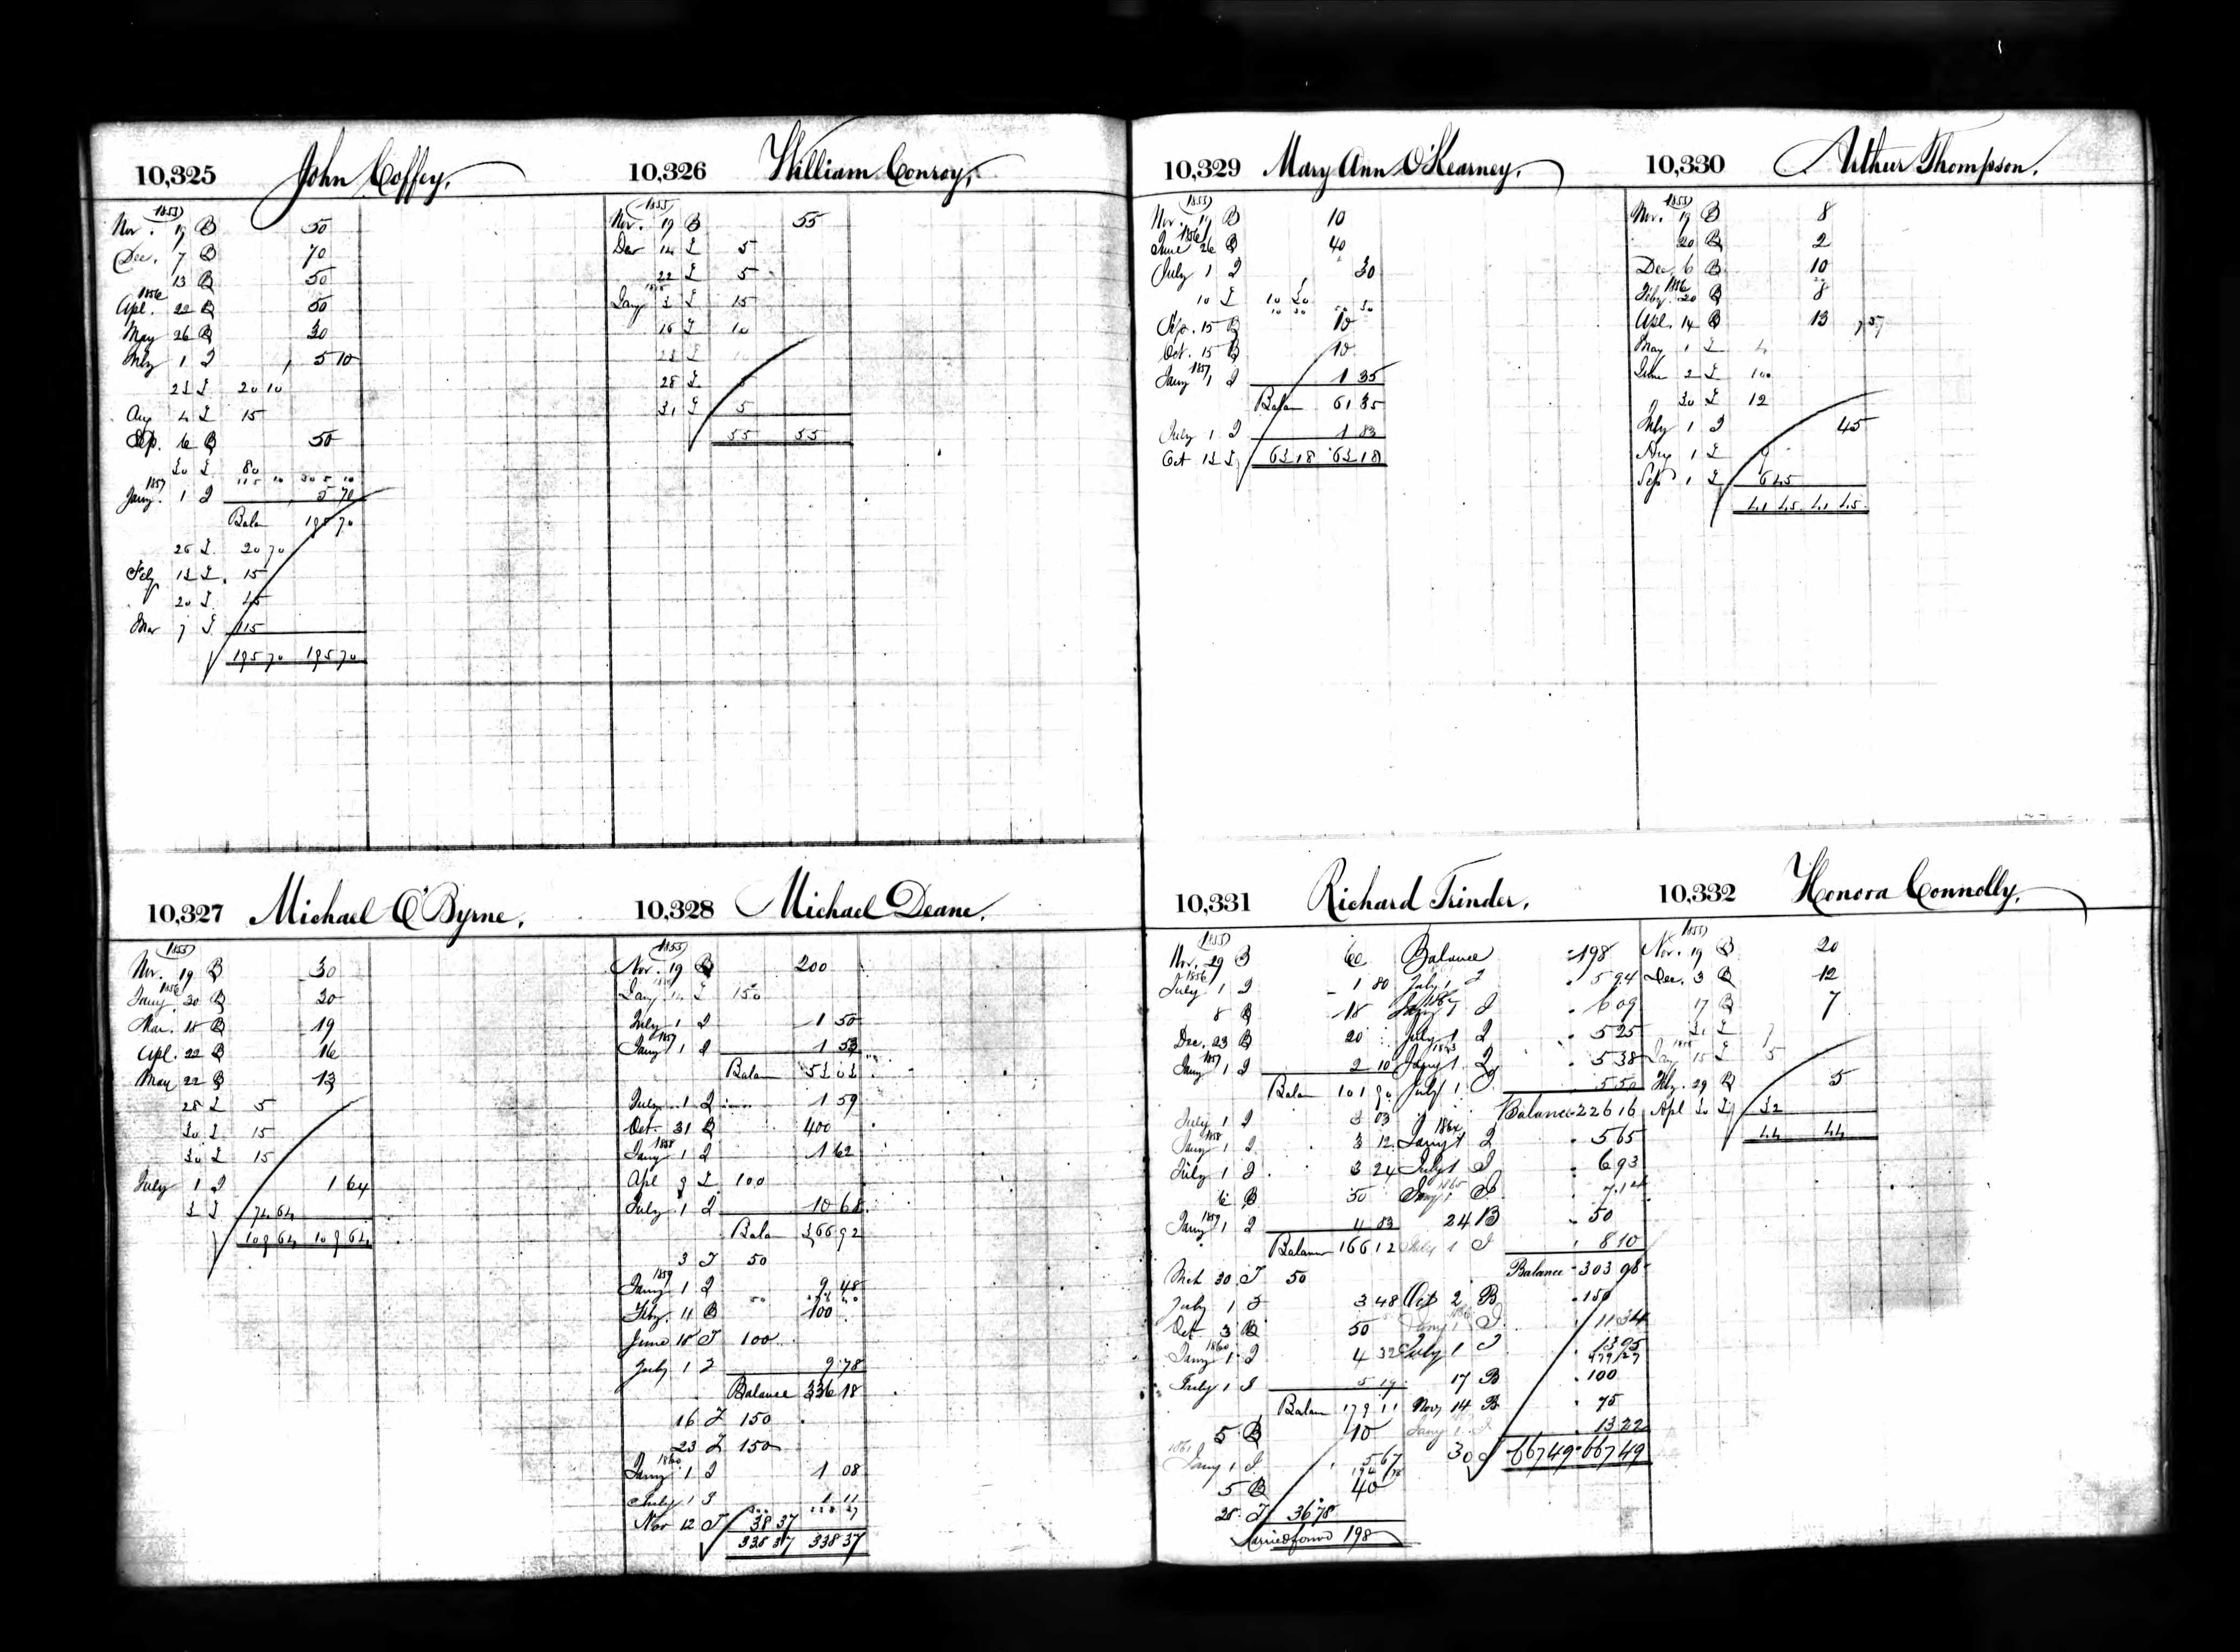 10,325 John Coffey,
1855
Nov. 19 B 50
Dec. 7 B 70
13 B 50
1856
Apl. 22 B 50
May 26 B 30
July 1 I 5 10
23 I 20 10
Aug 4 I 15
Sep. 16 B 50
30 I 80
115 10 305 10
1857
Jany. 1 I 5 70
Balan 195 70
26 I 20 70
Feby 13 I 15
20 I 45
Mar 7 I 115
195 70 195 70
10,326 William Conroy,
1855
Nov. 19 B 55
Dec 14 I 5
22 I 5
Jany 3 I 15
16 I 10
28 I 5
31 I 5
55 55
10,327 Michael O'Byrne,
1855
Nov. 19 B 30
1856
Jany. 30 B 30
Mar. 18 B 19
Apl. 22 B 16
May 22 B 13
28 I 5
30 I 15
30 I 15
July 1 I 1 64
3 I 74 64
109 64 109 64
10,328 Michael Deane,
1855
Nov. 19 B 200
Jany 14 I 150
July 1 I 1 50
1857
Jany 1 I 1 53
Balan 53 03
July 1 I 1 59
Oct. 31 B 400
1858
Jany 1 I 1 62
Apl 9 I 100
July 1 I 10 68
Balan 366 92
3 I 50
1859
Jany 1 I 9 48
Feby. 11 B 100
June 18 I 100
July 1 I 9 78
Balance 336 18
16 I 150
23 I 150
1860
Jany 1 I 1 08
July 1 I 1 11
Nov 12 I 38 37
338 37 338 37
10,329 Mary Ann O'Kearney,
1855
Nov. 19 B 10
1856
June 26 B 40
July 1 I 30
10 I 10 30
10 30 50 30
Sep. 15 B 10
Oct. 15 B 10
1857
Jany 1 I 1 35
Balan 61 35
July 1 I 1 83
Oct 13 I 63 18 63 18
10,330 Arthur Thompson,
1855
Nov. 19 B 8
20 B 2
Dec. 6 B 10
1856
Feby. 20 B 8
Apl. 14 B 13
May 1 I 4
June 2 I 10
30 I 12
July 1 I 45
Aug 1 I 9
Sep 1 I 6 45
41 45 41 45
10,331 Richard Trinder,
1855
Nov. 29 B 60
1856
July 1 I 1 80
8 B 18
Dec. 23 B 20
1857
Jany 1 I 2 10
Balan 101 90
July 1 I 3 03
1858
Jany 1 I 3 12
July 1 I 3 24
6 B 50
1859
Jany 1 I 4 83
Balance 166 12
Mch 30 I 50
July 1 I 3 48
Oct 3 B 50
1860
Jany 1 I 4 32
July 1 I 5 19
Balan 179 11
5 B 10
1861
Jany 1 I 5 67
194 78
5 B 40
25 I 36 78
Carried forwd 198
Balance 198
July 1 I 5 94
1862
Jany 1 I 6 09
July 1 I 5 25
1863
Jany 1 I 5 38
July 1 I 5 50
Balance 226 16
1864
Jany 1 I 5 65
July 1 I 6 93
1865
Jany 1 I 7 14
24 B 50
July 1 I 8 10
Balance 303 98
Oct 2 B 150
Jany 1 I 11 34
July 1 I 13 95
479 27
17 B 100
Nov 14 B 75
Jany 1 I 13 22
30 I 667 49 667 49
10,332 Honora Connolly,
1855
Nov. 19 B 20
Dec. 3 B 12
17 B 7
31 I 7
Jany 15 I 5
Feby. 29 B 5
Apl 30 I 32
44 44